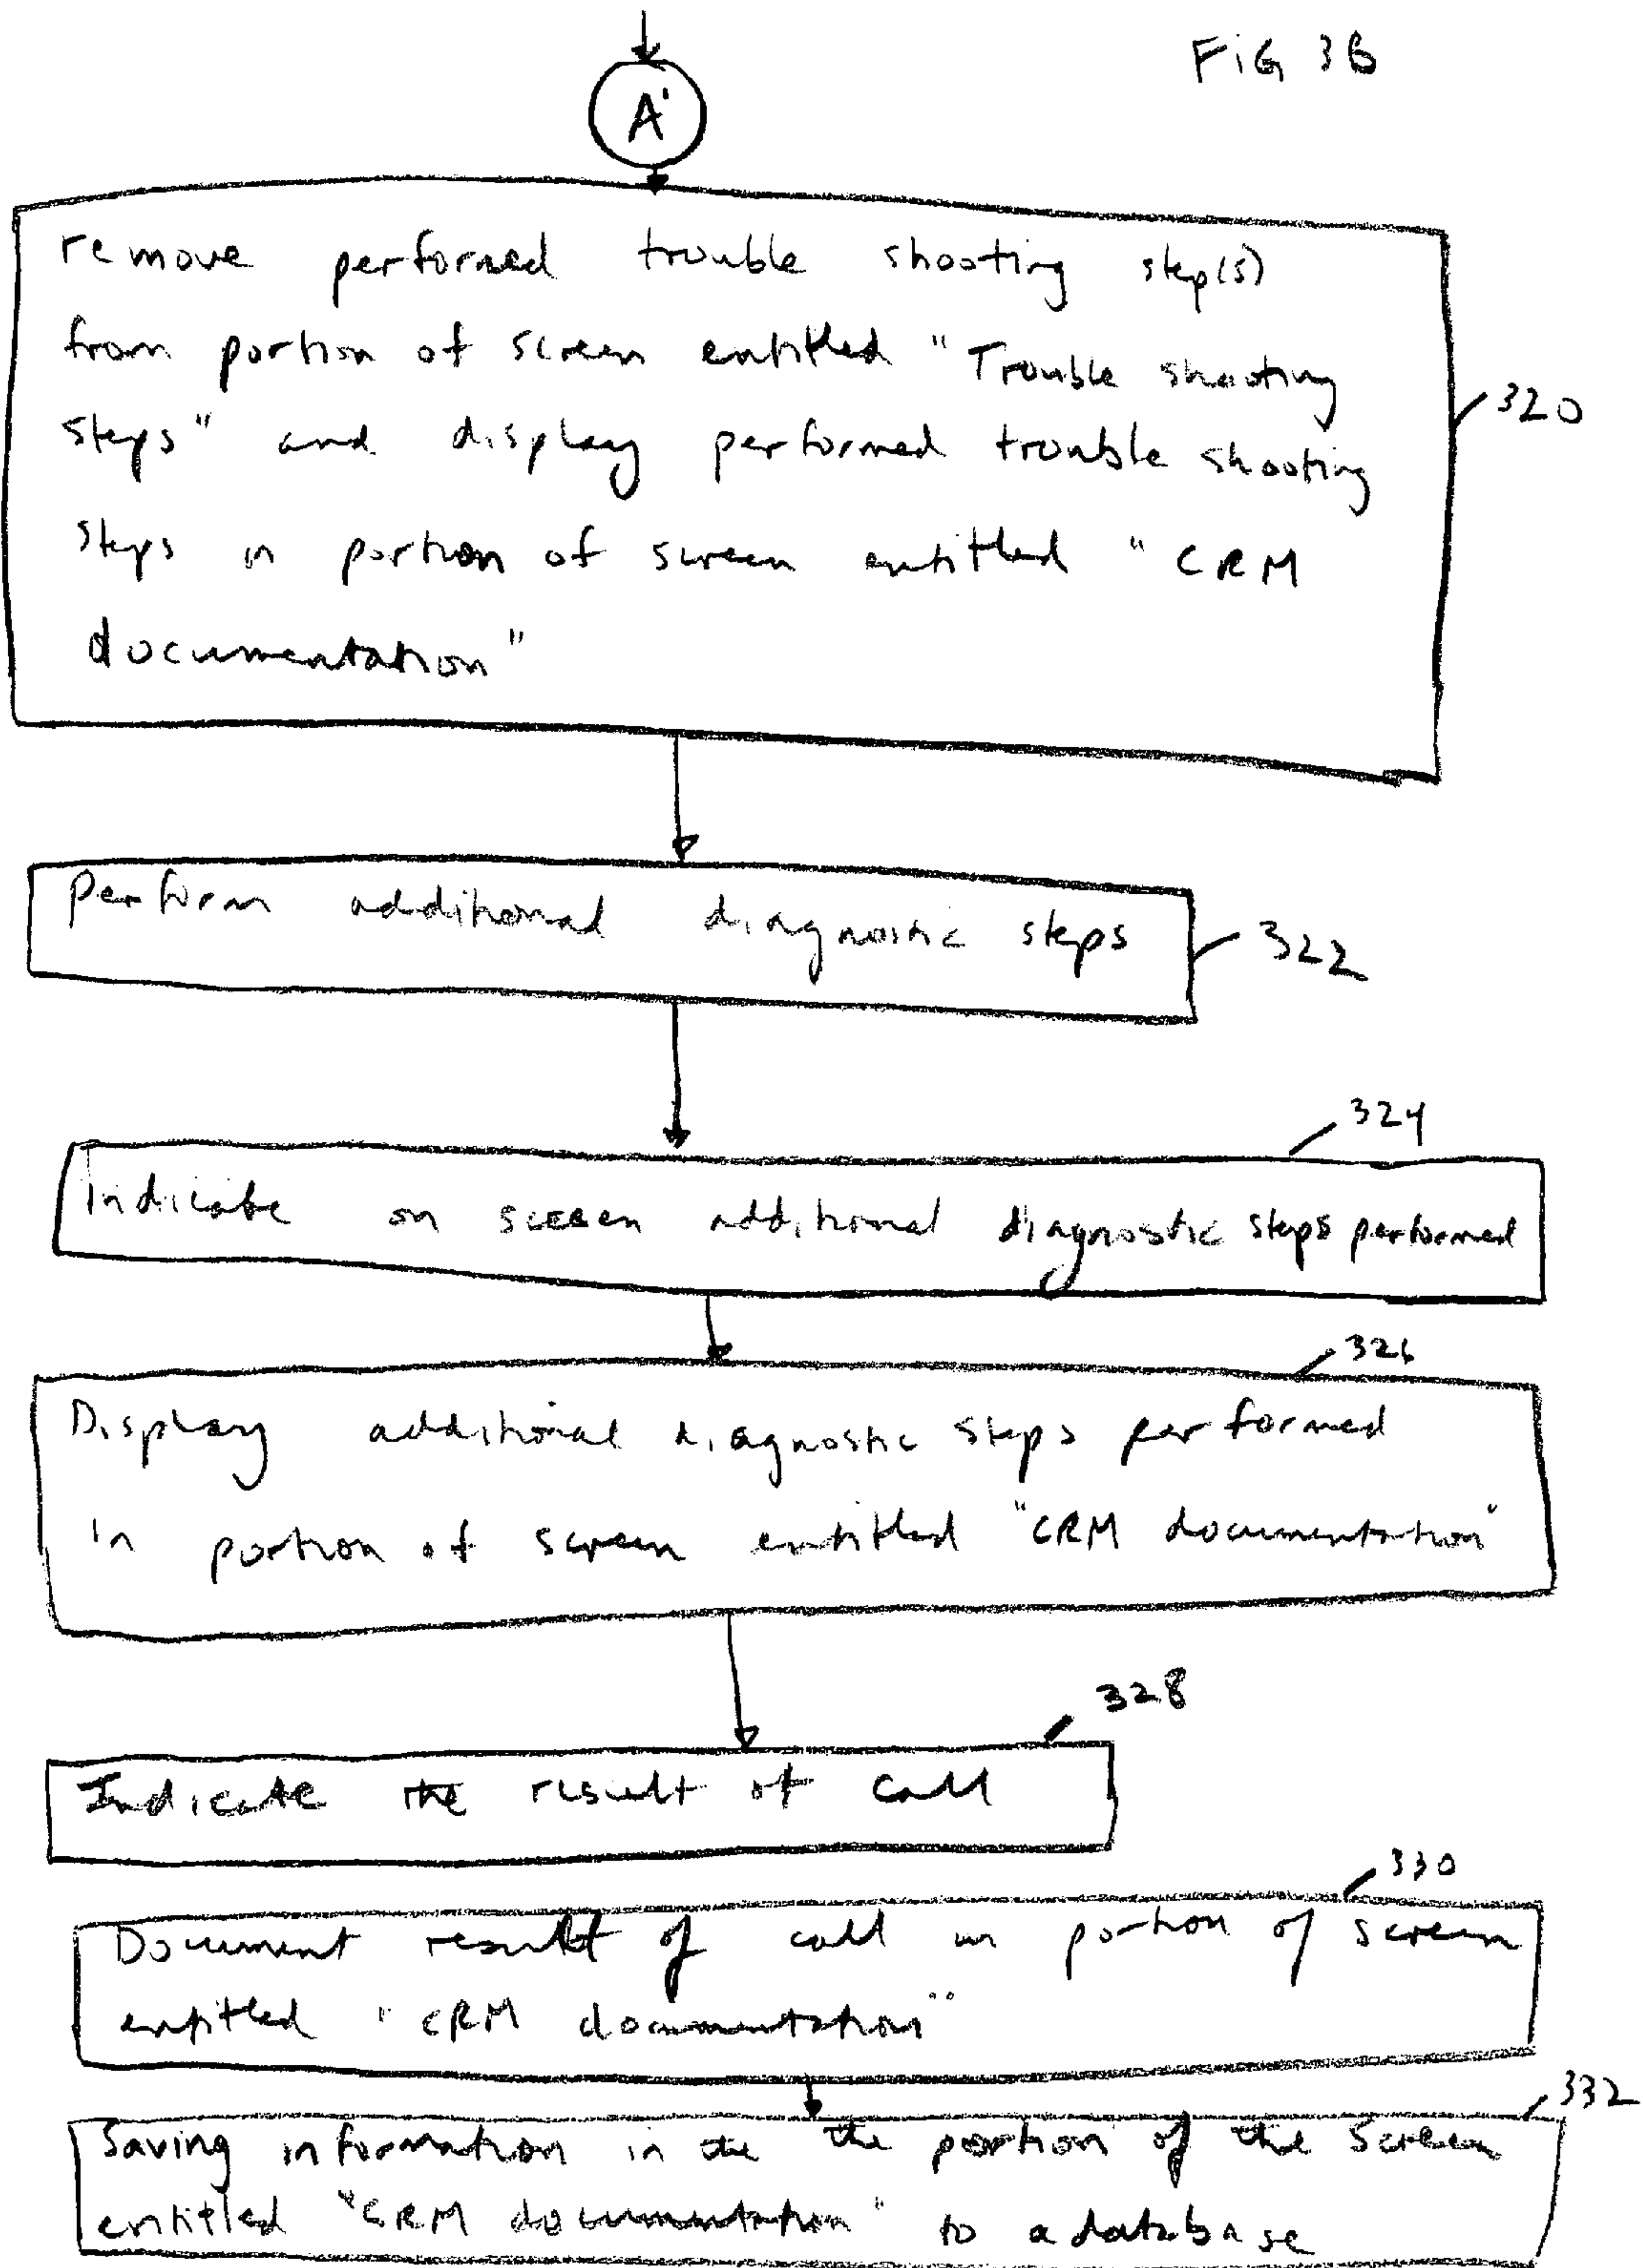 FiG 3B
A'
remove performed trouble shooting step(s)
from portion of screen entitled "Trouble shooting
steps" and display performed trouble shooting
320
steps in portion of screen entitled "CRM
documentation"
Perform additional diagnostic steps
322
324
Indicate on screen additional diagnostic steps performed
326
Display additional diagnostic steps performed
in portion of screen entitled "CRM documentation"
328
Indicate the result of call
330
Document result of call in portion of screen
entitled "CRM documentation"
332
Saving information in the the portion of the screen
entitled "CRM documentation" to a database